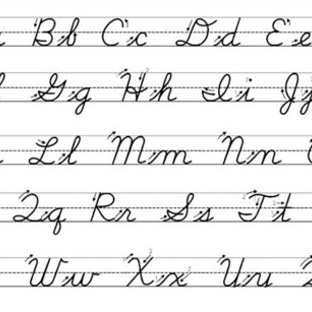 Bb Cc Dd Ee
Gg Hh Ii Jj
Ll Mm Nn
Qq Rr Ss Tt
Ww Xx Uu